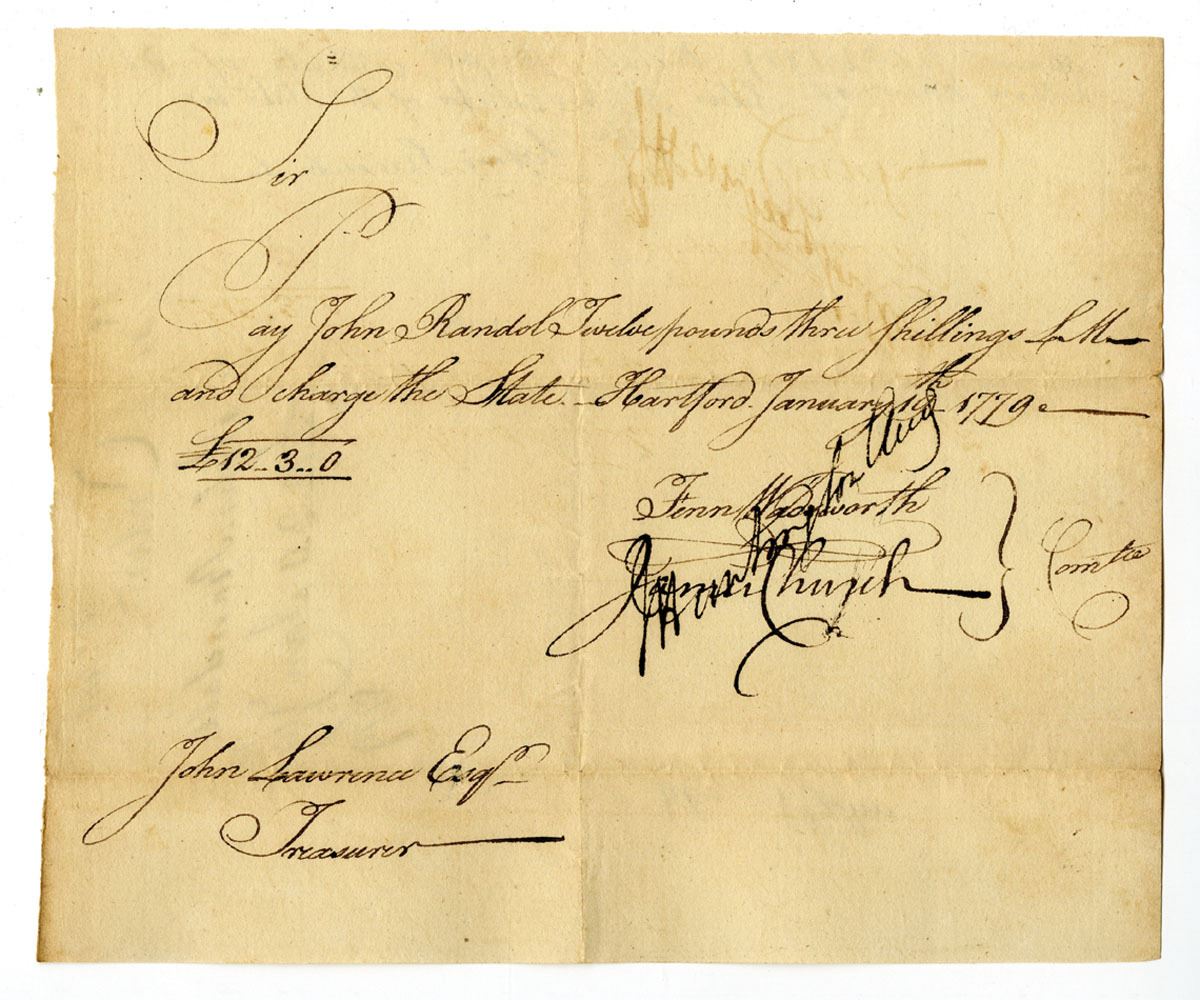 Sir
Pay John Randol Twelve pounds three Shillings L.M.
and charge the State. Hartford. January 19th 1779.
£12..3..0
Fenn Wadsworth
James Church
Comtee
John Lawrence Esqr
Treasurer